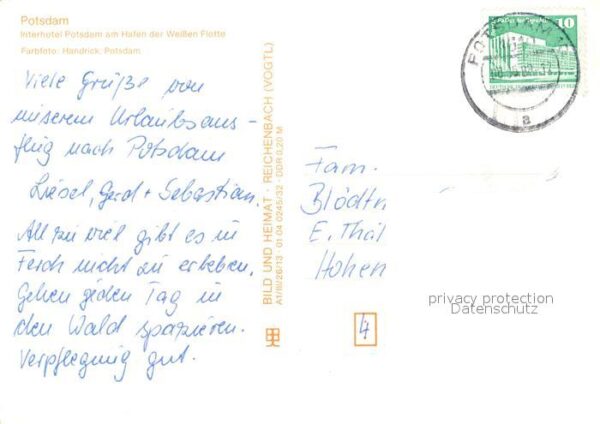 Potsdam
Interhotel Potsdam am Hafen der Weißen Flotte
Farbfoto: Handrick, Potsdam
Viele Grüße von
unserem Urlaubsaus-
flug nach Potsdam
Liesel, Gerd + Sebastian.
All zu viel gibt es in
Ferch nicht zu erleben.
Gehen jeden Tag in
den Wald spazieren.
Verpflegung gut.
BILD UND HEIMAT · REICHENBACH (VOGTL)
A1/III/26/13 01 04 0245/32 DDR 0,20 M
10
POTSDAM
a
Fam.
Blödtn
E. Thäl
Hohen
4
privacy protection
Datenschutz